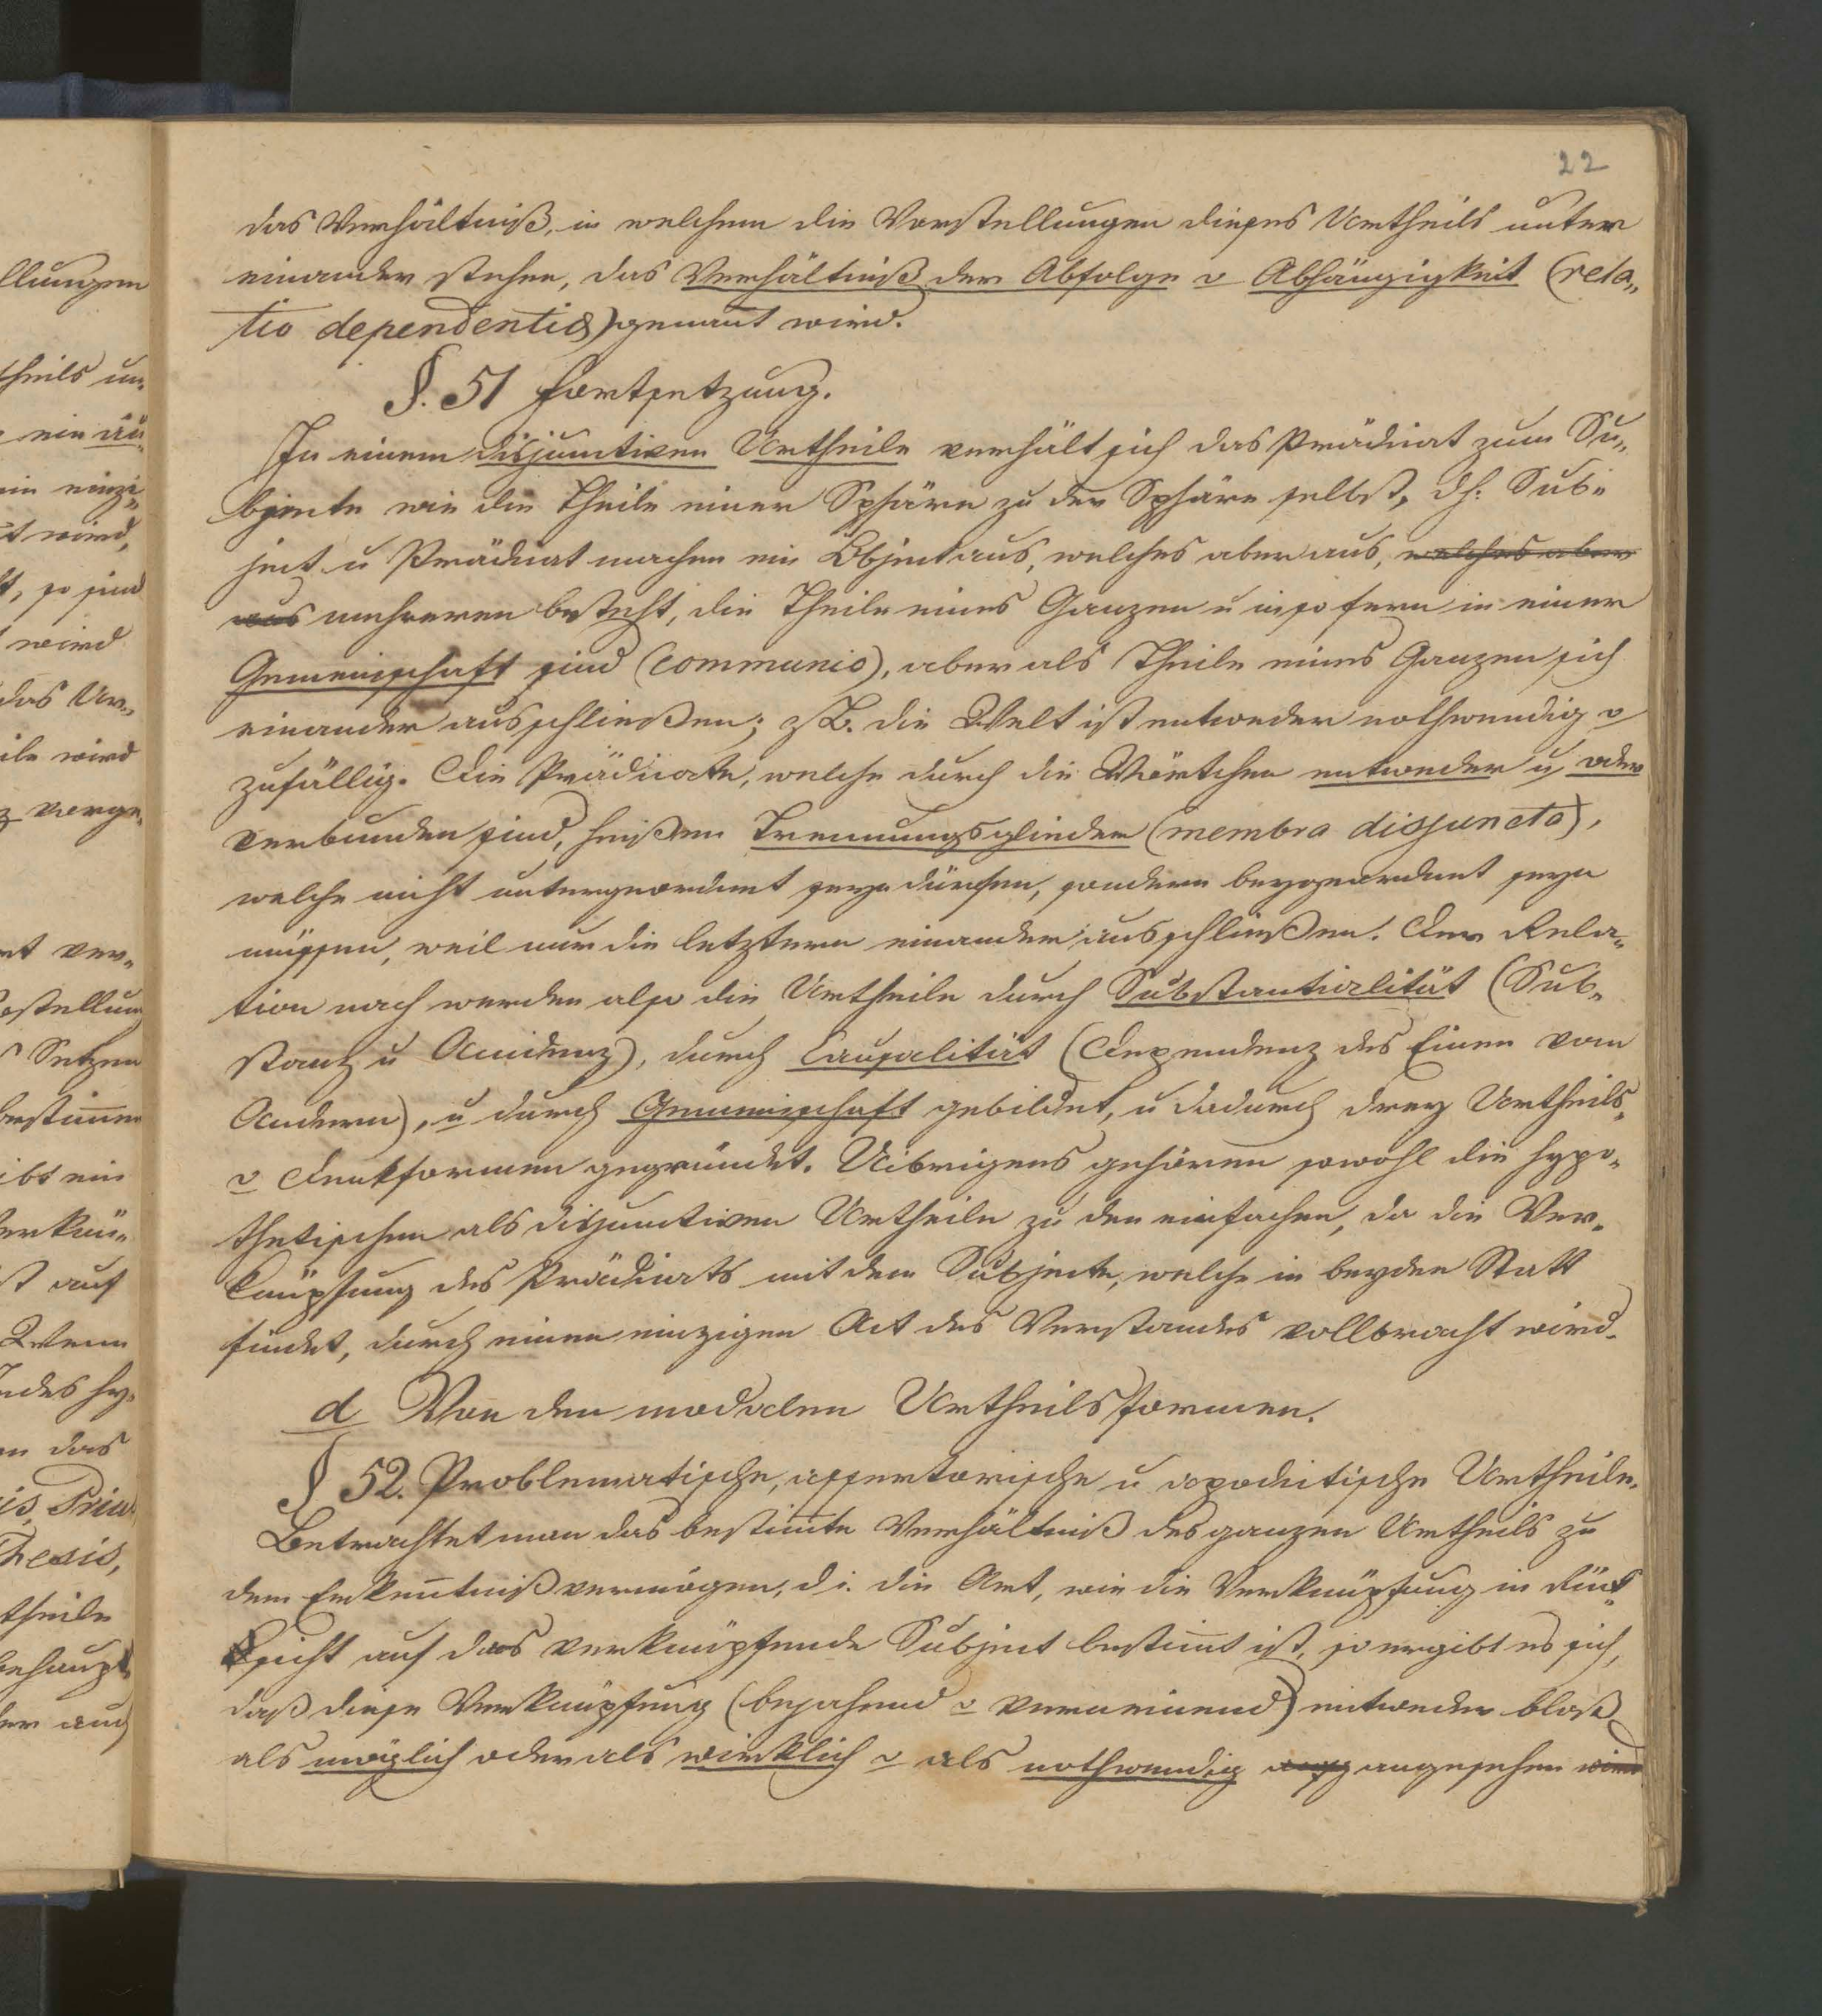 22
das Verhältniß, in welchem die Vorstellungen dieses Urtheils unter
einander stehen, das Verhältniß der Abfolge o Abhängigkeit (rela„
tio dependentia) genant wird.
§. 51 Fortsetzung.
In einem disjunctiven Urtheile verhält sich das Prädicat zum Su„
bjecte wie die Theile einer Sphäre zu der Sphäre selbst, dh. Sub„
ject u Prädicat machen ein Object aus, welches aber aus, welches aber
aus mehreren besteht, die Theile eines Ganzen u insofern in einer
Gemeinschaft sind (communio), aber als Theile eines Ganzen sich
einander ausschließen; zB. die Welt ist entweder nothwendig o
zufällig. Die Prädicate, welche durch die Wörtchen entweder u oder
verbunden sind, heißen Trennungsglieder (membra disjuncta),
welche nicht untergeordnet seyn dürfen, sondern beygeordnet seyn
müssen, weil nur die letztern einander ausschließen. Der Rela„
tion nach werden also die Urtheile durch Substantialität (Sub„
stanz u Accidenz), durch Causalität (Dependenz des Einen vom
Andern), u durch Gemeinschaft gebildet, u dadurch drey Urtheils„
o Denkformen gegründet. Uibrigens gehören sowohl die hypo„
thetischen als disjunctiven Urtheile zu den einfachen, da die Ver„
knüpfung des Prädicats mit dem Subjecte, welche in beyden Statt
findet, durch einen einzigen Act des Verstandes vollbracht wird.
d Von den modalen Urtheilsformen.
§ 52. Problematische, assertorische u apodictische Urtheile.
Betrachtet man das bestimte Verhältniß des ganzen Urtheils zu
dem Erkentnißvermögen, d i. die Art, wie die Verknüpfung in Rück„
sicht auf das verknüpfende Subject bestimt ist, so ergibt es sich,
daß diese Verknüpfung (bejahend o verneinend) entweder bloß
als möglich oder als wirklich o als nothwendig angesehen wird